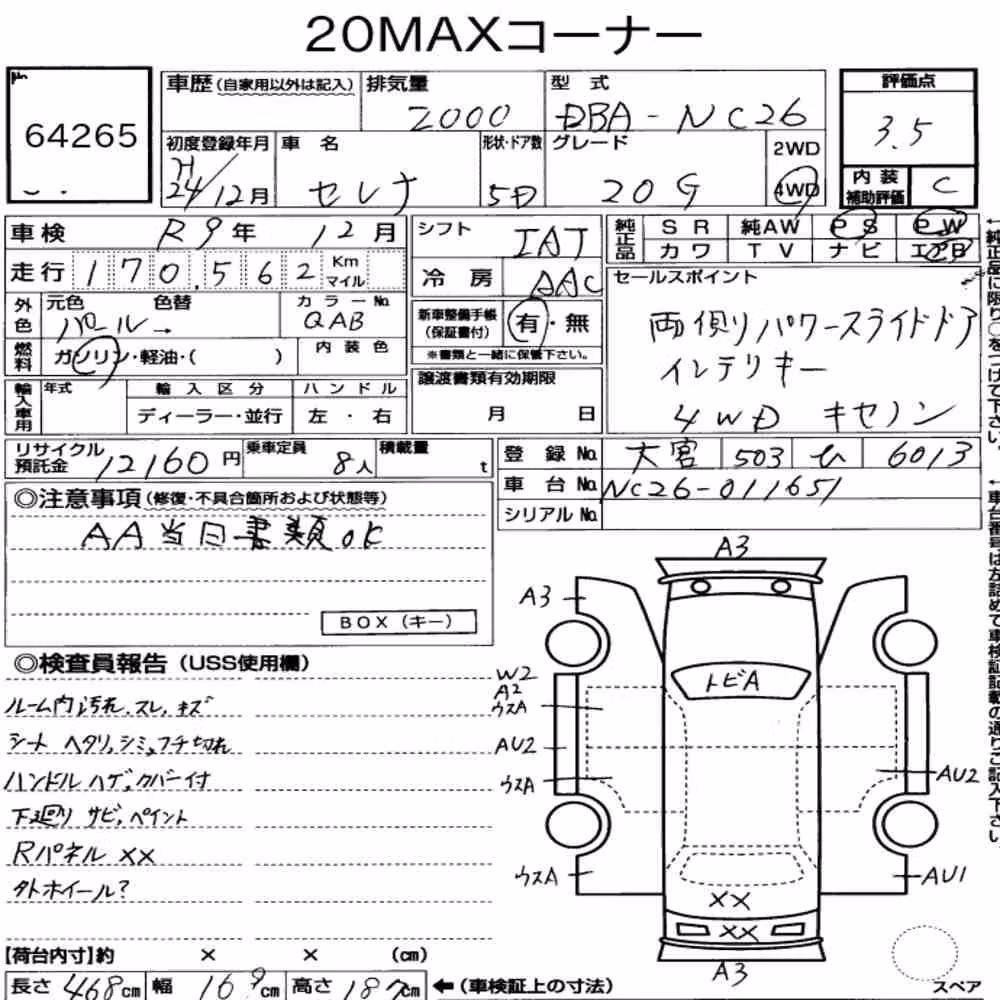 20MAXコーナー
No.
64265
車歴(自家用以外は記入) 排気量 型式 評価点
2000 DBA-NC26 3.5
初度登録年月 車名 形状・ドア数 グレード 2WD
H24/12月 セレナ 5D 20G 4WD
内装補助評価 C
車検 R9年 12月
走行 170,562 Km マイル
外色 元色 色替 カラーNo.
パール→ QAB
燃料 ガソリン・軽油・( ) 内装色
輸入車用 年式 輸入区分 ハンドル
ディーラー・並行 左・右
シフト IAT
冷房 AAC
新車整備手帳(保証書付) 有・無
※書類と一緒に保管下さい。
譲渡書類有効期限
月 日
純正品 SR 純AW PS PW
カワ TV ナビ エアB
セールスポイント
両側パワースライドドア
インテリキー
4WD キセノン
リサイクル預託金 12160円 乗車定員 8人 積載量 t
登録No. 大宮 503 ひ 6013
車台No. NC26-011651
シリアルNo.
◎注意事項(修復・不具合箇所および状態等)
AA当日書類OK
BOX(キー)
◎検査員報告(USS使用欄)
ルーム内汚れ、スレ、キズ
シート ヘタリ、シミ、フチ切れ
ハンドル ハゲ、カバー付
下廻り サビ、ペイント
Rパネル XX
タトホイール?
A3
A3
トビA
W2
A2
ウスA
AU2
ウスA
AU2
ウスA
AU1
XX
XX
A3
スペア
【荷台内寸】約 × × (cm)
長さ 468cm 幅 169cm 高さ 187cm ←(車検証上の寸法)
←純正品に限り○をつけて下さい。
←車台番号は左詰めで車検証記載の通りご記入下さい。